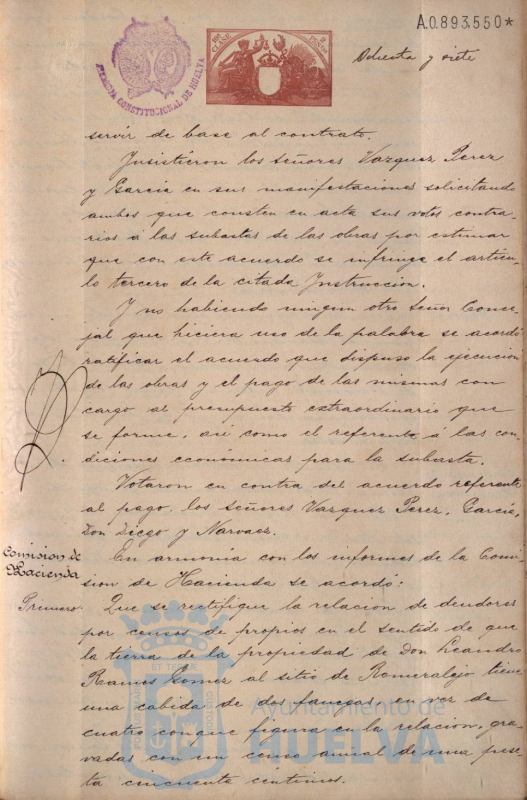 A.0.893.550*
ALCALDIA CONSTITUCIONAL DE HUELVA
Ochenta y siete
servir de base al contrato.
Insistieron los señores Vazquez Perez
y Garcia en sus manifestaciones solicitando
ambos que consten en acta sus votos contra-
rios á las subastas de las obras por estimar
que con este acuerdo se infringe el articu-
lo tercero de la citada Instruccion.
Y no habiendo ningun otro Señor Conce-
jal que hiciera uso de la palabra se acordó
ratificar el acuerdo que dispuso la ejecucion
de las obras y el pago de las mismas con
cargo al presupuesto extraordinario que
se forme, asi como el referente á las con-
diciones económicas para la subasta.
Votaron en contra del acuerdo referente
al pago, los señores Vazquez Perez, Garcia,
Don Diego y Narvaez.
Comision de
Hacienda
En armonía con los informes de la Comi-
sion de Hacienda se acordó:
Primero
Que se rectifique la relacion de deudores
por censos de propios en el sentido de que
la tierra de la propiedad de Don Leandro
Ramos Gomez al sitio de Romeralejo tiene
una cabida de dos fanegas en vez de
cuatro conque figura en la relacion, gra-
vadas con un censo anual de una pese-
ta cincuenta centimos.
Ayuntamiento de
HUELVA